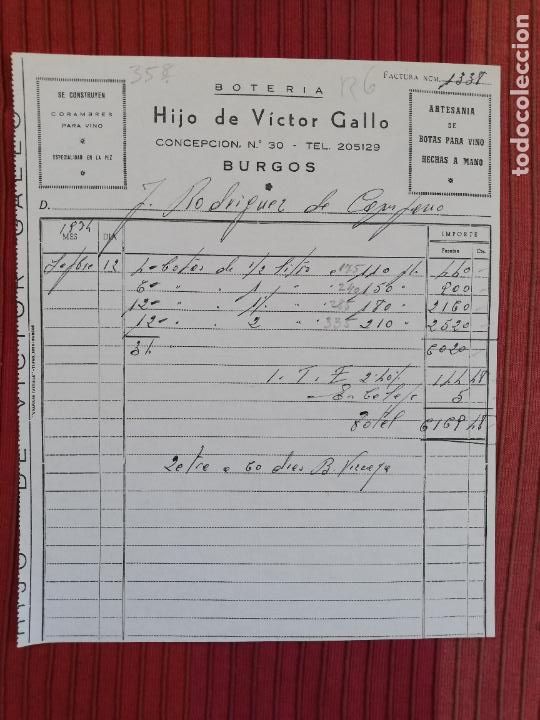 358
R6
FACTURA NÚM. 1338
BOTERIA
Hijo de Víctor Gallo
CONCEPCION, N.° 30 - TEL. 205129
BURGOS
SE CONSTRUYEN
CORAMBRES
PARA VINO
ESPECIALIDAD EN LA PEZ
ARTESANIA
DE
BOTAS PARA VINO
HECHAS A MANO
D. J. Rodriguez de
1974
MES DIA IMPORTE
Pesetas Cts.
12 4- botas de 1/2 litro a 175 110 pts. 440 -
6- " " 1 " " 240 150 " 900 -
12- " " 1 1/2 " " 285 180 " 2160 -
12- " " 2 " " 335 210 " 2520 -
34 6020 -
I. T. E. 2'40% 144 48
5
Total 6169 48
a 60 dias B. Vizcaya
HIJO DE VICTOR GALLO
todocoleccion